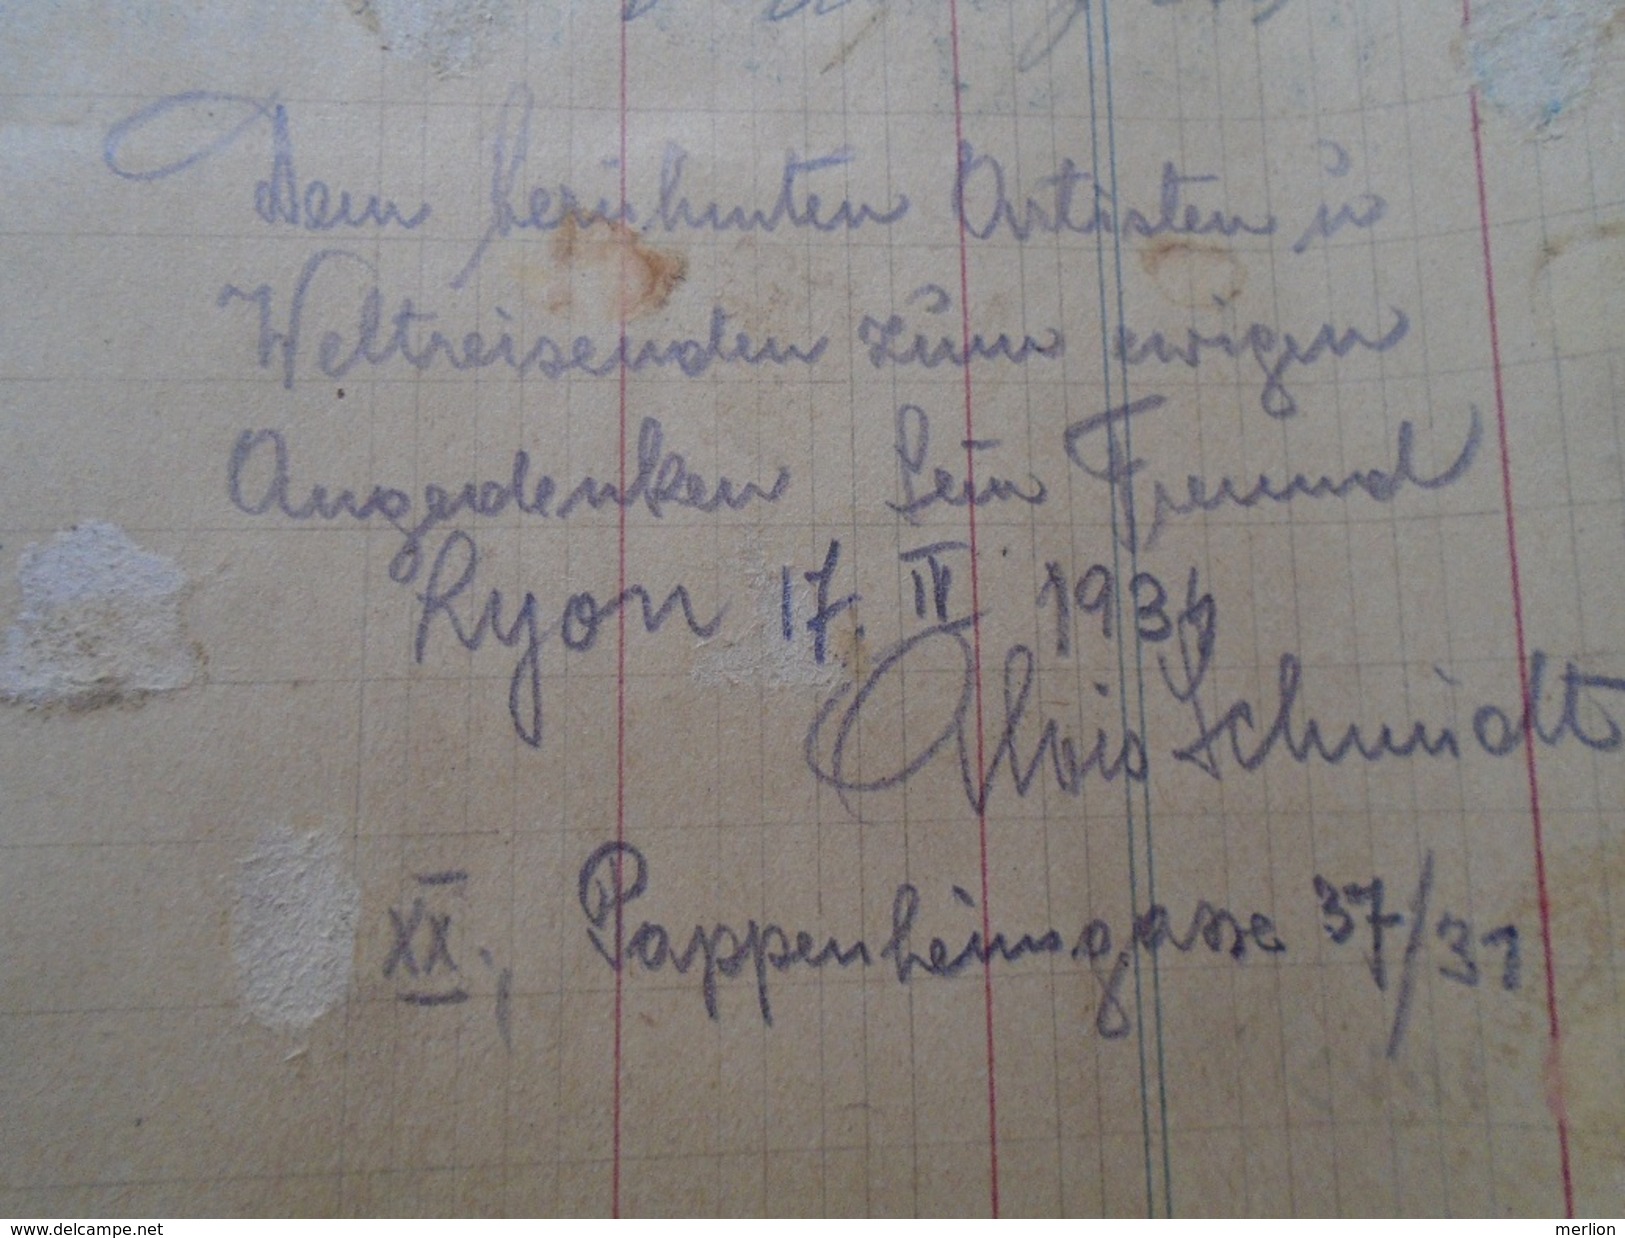 Dem berühmten Artisten ü
Weltreisenden zum ewigen
Angedenken sein Freund
Lyon 17. IV 193
Alois Schmidt
XX., Pappenheimgasse 37/31
www.delcampe.net
merlion